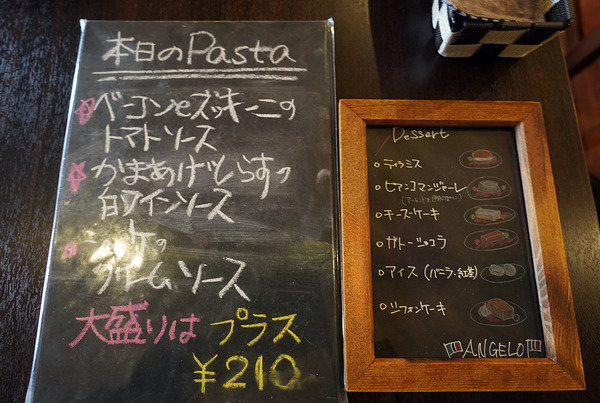 本日のPasta
☆ベーコンとズッキーニの
トマトソース
☆かまあげしらすの
白ワインソース
☆シャケの
クリームソース
大盛りは プラス
¥210
Dessert
ティラミス
ビアンコマンジャーレ
チーズケーキ
ガトーショコラ
アイス (バニラ・紅茶)
シフォンケーキ
ANGELO